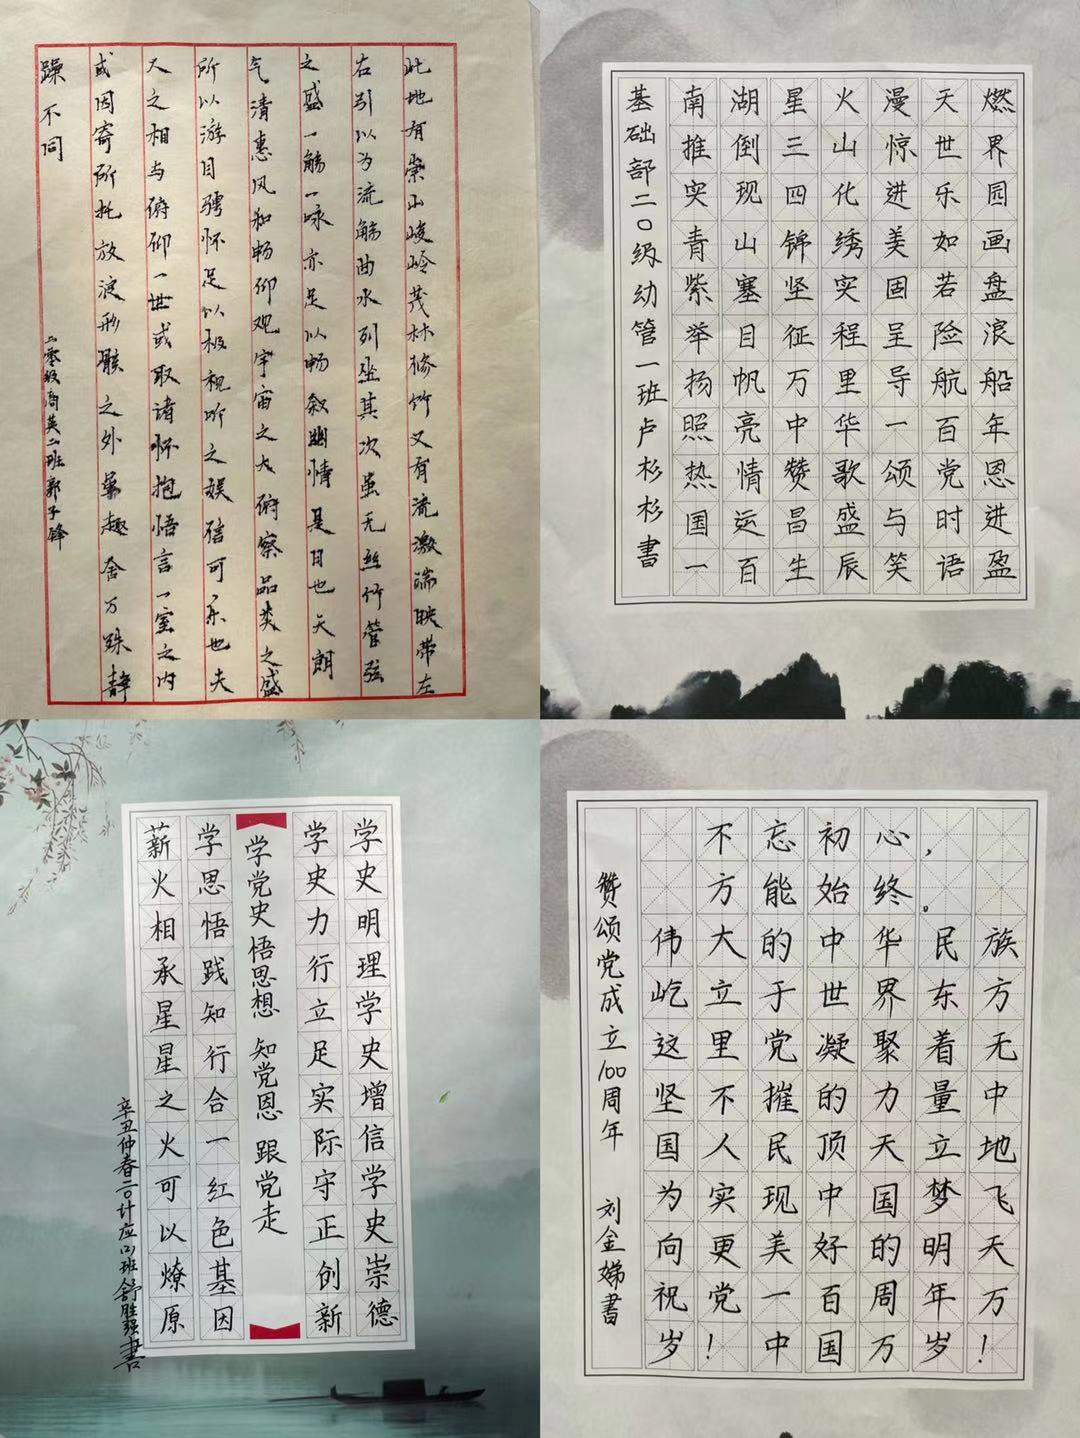 此地有崇山峻岭茂林修竹又有流激湍映带左
右引以为流觞曲水列坐其次虽无丝竹管弦
之盛一觞一咏亦足以畅叙幽情是日也天朗
气清惠风和畅仰观宇宙之大俯察品类之盛
所以游目骋怀足以极视听之娱信可乐也夫
人之相与俯仰一世或取诸怀抱悟言一室之内
或因寄所托放浪形骸之外虽趣舍万殊静
躁不同
二零级商英二班郭子锋
南湖星火漫天燃
推倒三山惊世界
实现四化进乐园
青山锦绣美如画
紫塞坚实国若盘
举目征程呈险浪
扬帆万里导航船
照亮中华一百年
热情赞歌颂党恩
国运昌盛与时进
一百生辰笑语盈
基础部二〇级幼管一班卢杉杉書
学史明理学史增信学史崇德
学史力行立足实际守正创新
学党史悟思想 知党恩 跟党走
学思悟践知行合一红色基因
薪火相承星星之火可以燎原
辛丑仲春二〇计应(2)班舒胜强書
不忘初心，
方能始终。
伟大的中华民族
屹立于世界东方
这里党凝聚着无
坚不摧的力量中
国人民顶天立地
为实现中国梦飞
向更美好的明天
祝党一百周年万
岁！中国万岁！
赞颂党成立100周年 刘金娣書